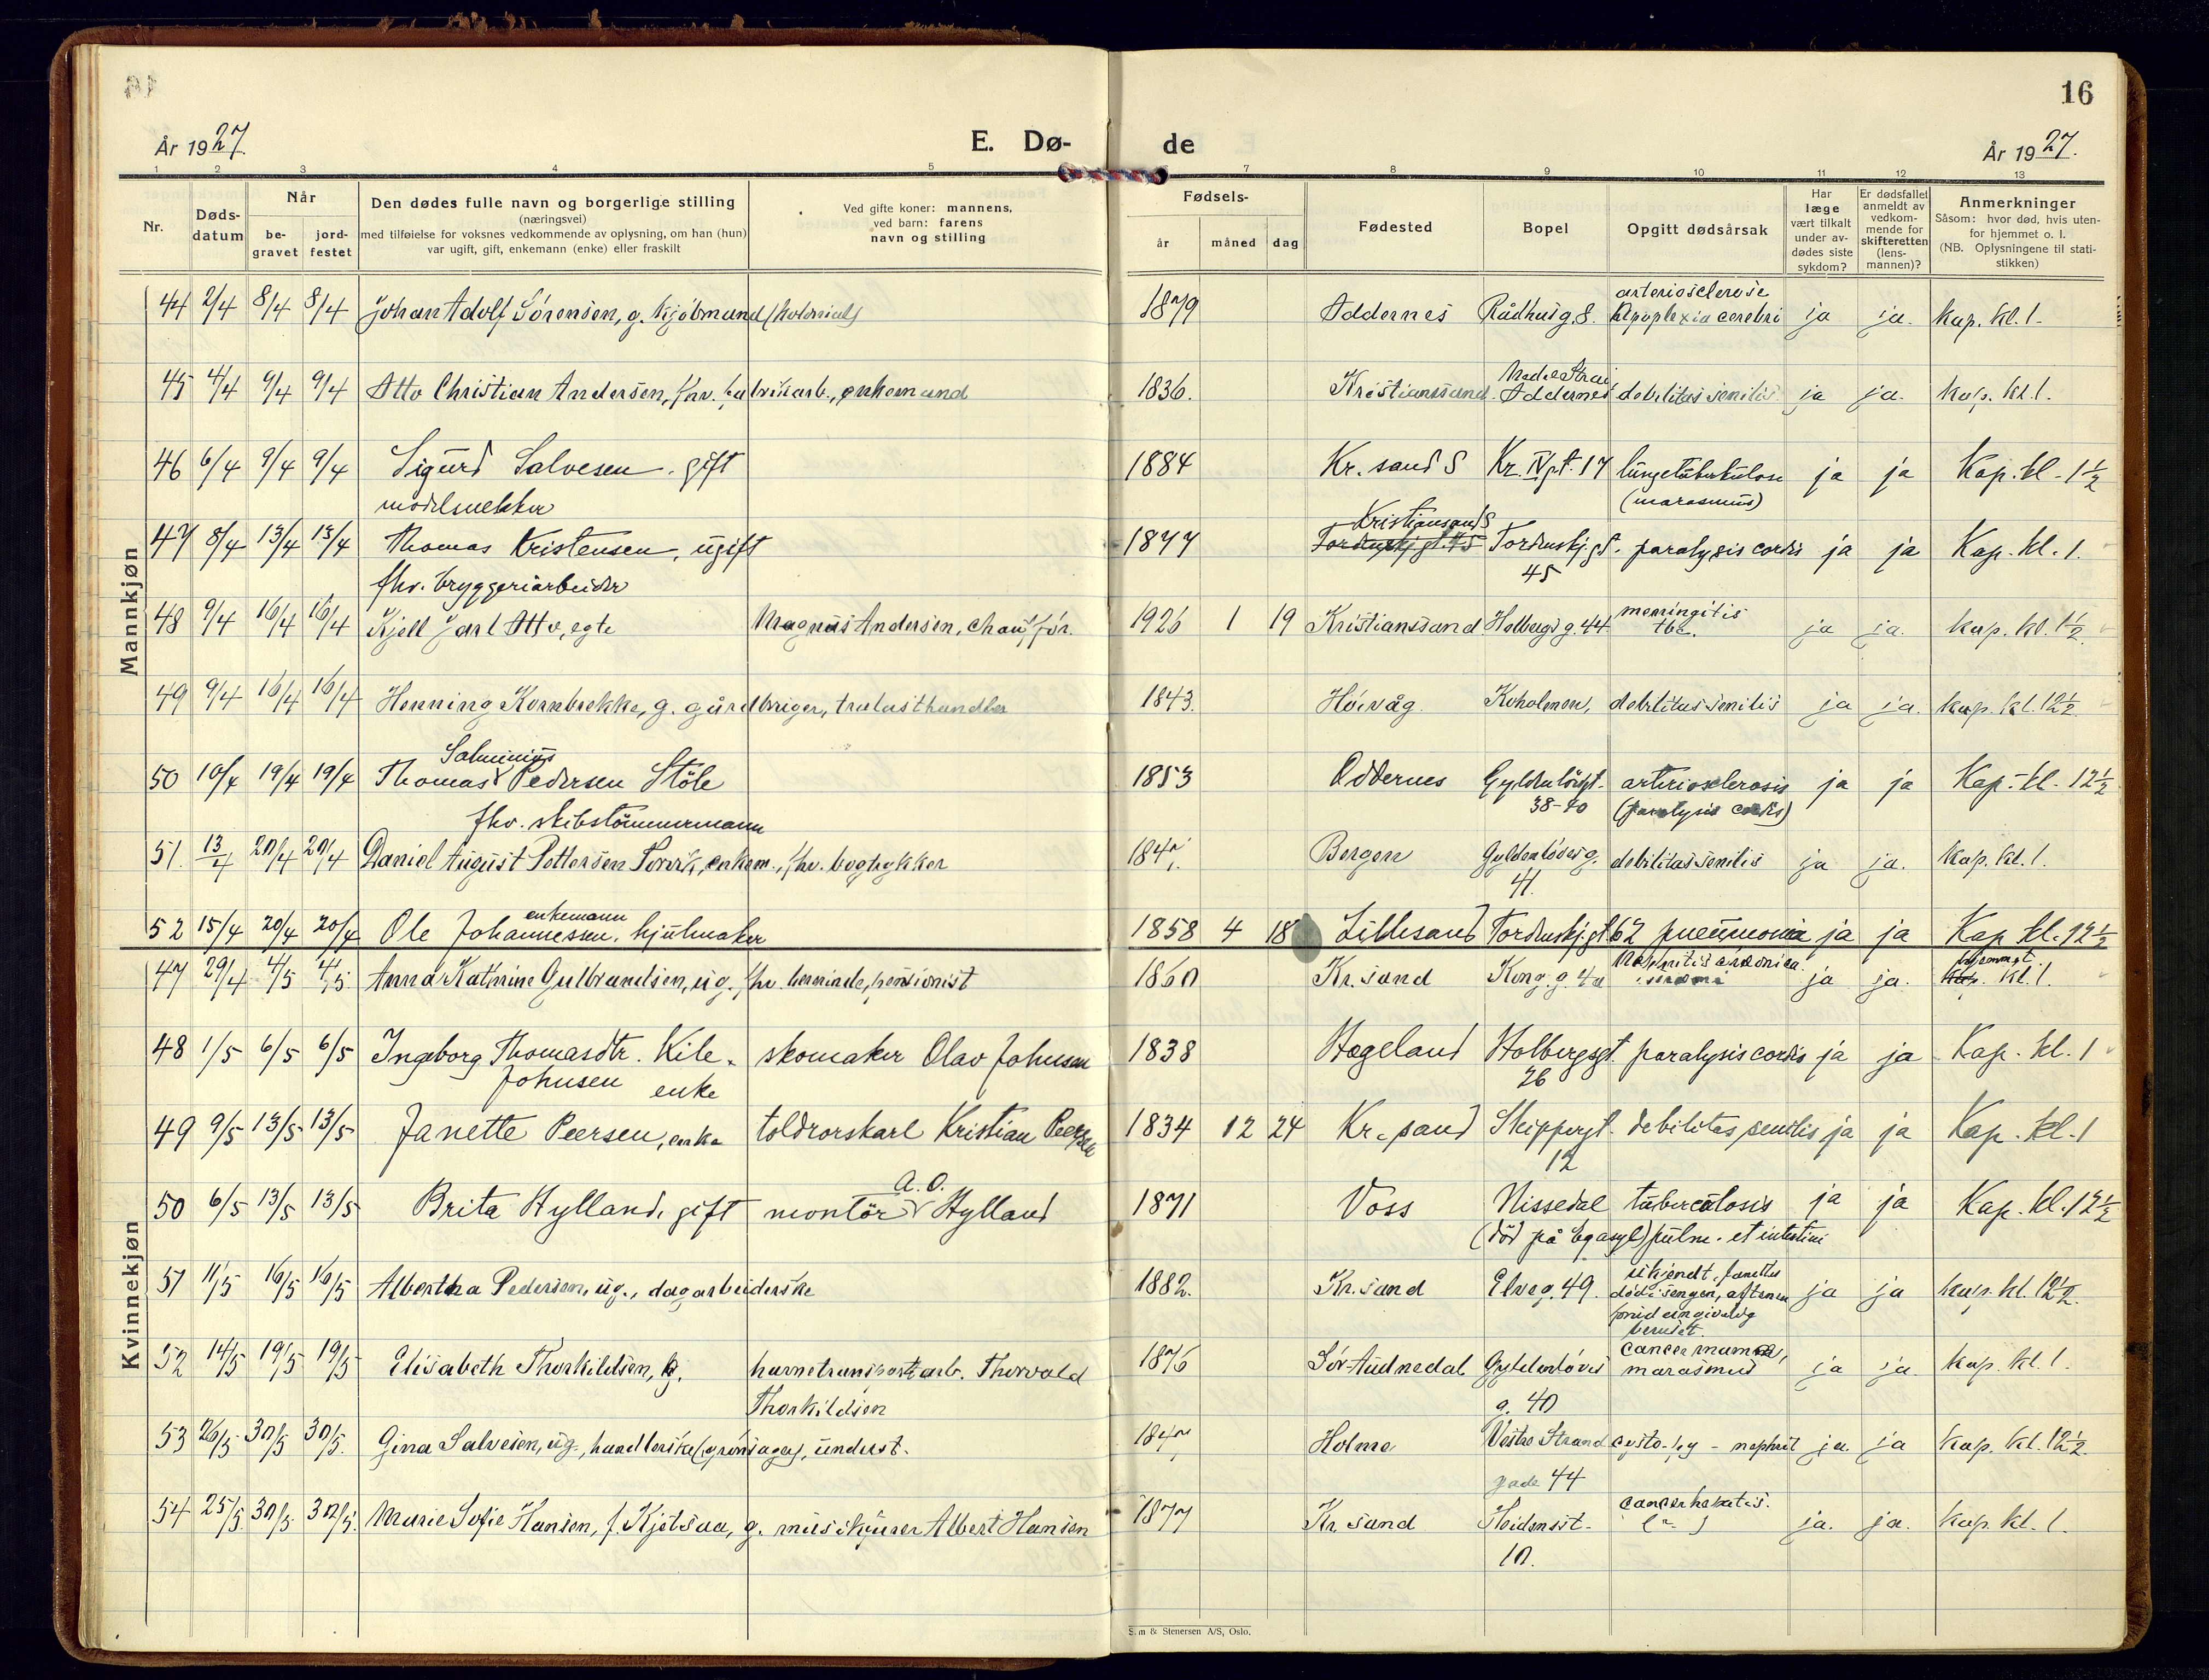 16
År 1927.
E. Dø-
de
År 1927.
1 2 3 4 5 7 8 9 10 11 12 13
Nr.
Døds-
datum
Når
be-
gravet
jord-
festet
Den dødes fulle navn og borgerlige stilling
(næringsvei)
med tilføielse for voksnes vedkommende av oplysning, om han (hun)
var ugift, gift, enkemann (enke) eller fraskilt
Ved gifte koner: mannens,
ved barn: farens
navn og stilling
Fødsels-
år måned dag
Fødested
Bopel
Opgitt dødsårsak
Har
læge
vært tilkalt
under av-
dødes siste
sykdom?
Er dødsfallet
anmeldt av
vedkom-
mende for
skifteretten
(lens-
mannen)?
Anmerkninger
Såsom: hvor død, hvis uten-
for hjemmet o. l.
(NB. Oplysningene til stati-
stikken)
Mannkjøn
arteriosclerose
44 2/4 8/4 8/4 Johan Adolf Sörensen, g. kjöbmand (kolonial) 1879 Oddernes Rådhusg. 8. Apoplexia cerebri ja ja. kap. kl. 1.
45 4/4 9/4 9/4 Otto Christian Andersen, fhv. fabrikarb., enkemand 1836. Kristianssand. Oddernes debilitas senilis ja ja. kap. kl. 1.
46 6/4 9/4 9/4 Sigurd Salvesen. gift 1884 Kr. sand S Kr. IV gt. 17 lungetuberkulose ja ja Kap. kl. 1 1/2
modelsnekker (marasmus)
Kristiansand S
47 8/4 13/4 13/4 Thomas Kristensen, ugift 1877 Tordenskj.gt. 45 Tordenskj.gt. paralysis cordis ja ja Kap. kl. 1.
fhv. bryggeriarbeider 45
meningitis
48 9/4 16/4 16/4 Kjell Jarl Otto, egte Magnus Andersen, chaufför. 1926 1 19 Kristianssand Holbergs g. 44 tbc. ja ja. kap. kl. 1 1/2
49 9/4 16/4 16/4 Henning Kornbrekke, g. gårdbruger, trælasthandler 1843. Höivåg. Koholmen, debilitas senilis ja ja. kap. kl. 12 1/2.
50 10/4 19/4 19/4 Thomas Pedersen Stöle 1853 Oddernes Gyldenlövsgt. arteriosclerosis ja ja Kap. kl. 12 1/2
fhv. skibstömmermann 38-40 (paralysis cordis)
51. 13/4 20/4 20/4 Daniel August Pettersen Torvik, enkem., fhv. bogtrykker Bergen Gyldenlöves g. debilitas senilis ja ja. kap. kl. 1.
41.
enkemann
52 15/4 20/4 20/4 Ole Johannessen. hjulmaker 1858 4 18 Lillesand Tordenskj.gt 62 pneumonia ja ja Kap kl. 12 1/2
Kvinnekjøn
47 29/4 4/5 4/5. Anna Kathrine Gulbrandsen, ug. fhv. lærerinde, pensionist 1860 Kr. sand Kong. g. 4a ja ja. kap. kl. 1.
48 1/5 6/5 6/5 Ingeborg Thomasdtr. Kile - skomaker Olav Johnsen 1838 Hægeland Holbergsgt. paralysis cordis ja ja Kap. kl. 1
Johnsen enke 26
49 9/5 13/5 13/5 Janette Peersen, enke toldrorskarl Kristian Peersen 1834 12 24 Kr. sand Skippergt. debilitas senilis ja ja Kap. kl. 1
12
A. O.
50 6/5 13/5 13/5 Brita Hylland, gift montör Hylland 1871 Voss Nissedal tuberculosis ja ja Kap. kl. 12 1/2
(död på Eg asyl) pulm. et intestini
51 11/5 16/5 16/5 Albertha Pedersen, ug., dagarbeiderske 1882. Kr. sand Elveg. 49. ukjendt, fanttes ja ja kap. kl. 12 1/2.
död i sengen, aftenen
beruset.
cancer mammæ,
52 14/5 19/5 19/5 Elisabeth Thorkildsen, g. havnetransportarb. Thorvald 1876 Sör-Audnedal Gyldenlöves marasmus ja ja kap. kl. 1.
Thorkildsen g. 40
53 26/5 30/5 30/5. Gina Salvesen, ug., handlerske (grønsager), underst. 1847 Holme Vestre Strand cysto-py - nephrit ja. ja kap. kl. 12 1/2.
gade 44
cancer hepatis.
54 25/5 30/5. 30/5. Marie Sofie Hansen, f. Kjetsaa, g. musikjurer Albert Hansen 1877 Kr. sand ja. ja. kap. kl. 1.
10.
S.m & Stenersen A/S, Oslo.